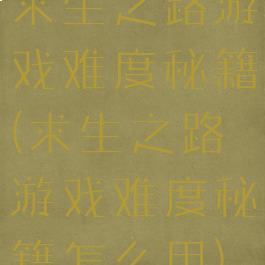 求生之路游
戏难度秘籍
(求生之路
游戏难度秘
籍怎么用)